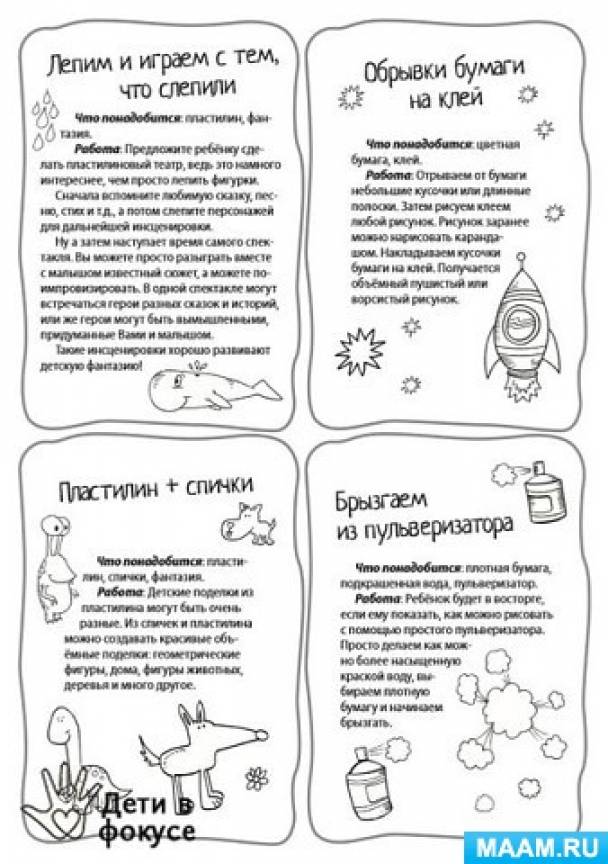 Лепим и играем с тем,
что слепили
Что понадобится: пластилин, фан-
тазия.
Работа: Предложите ребёнку сде-
лать пластилиновый театр, ведь это намного
интереснее, чем просто лепить фигурки.
Сначала вспомните любимую сказку, пес-
ню, стих и т.д., а потом слепите персонажей
для дальнейшей инсценировки.
Ну а затем наступает время самого спек-
такля. Вы можете просто разыграть вместе
с малышом известный сюжет, а можете по-
импровизировать. В одной спектакле могут
встречаться герои разных сказок и историй,
или же герои могут быть вымышленными,
придуманные Вами и малышом.
Такие инсценировки хорошо развивают
детскую фантазию!
Обрывки бумаги
на клей
Что понадобится: цветная
бумага, клей.
Работа: Отрываем от бумаги
небольшие кусочки или длинные
полоски. Затем рисуем клеем
любой рисунок. Рисунок заранее
можно нарисовать каранда-
шом. Накладываем кусочки
бумаги на клей. Получается
объёмный пушистый или
ворсистый рисунок.
Пластилин + спички
Что понадобится: пласти-
лин, спички, фантазия.
Работа: Детские поделки из
пластилина могут быть очень
разные. Из спичек и пластилина
можно создавать красивые объ-
ёмные поделки: геометрические
фигуры, дома, фигуры животных,
деревья и много другое.
Брызгаем
из пульверизатора
Что понадобится: плотная бумага,
подкрашенная вода, пульверизатор.
Работа: Ребёнок будет в восторге,
если ему показать, как можно рисовать
с помощью простого пульверизатора.
Просто делаем как мож-
но более насыщенную
краской воду, вы-
бираем плотную
бумагу и начинаем
брызгать.
Дети в
фокусе
MAAM.RU